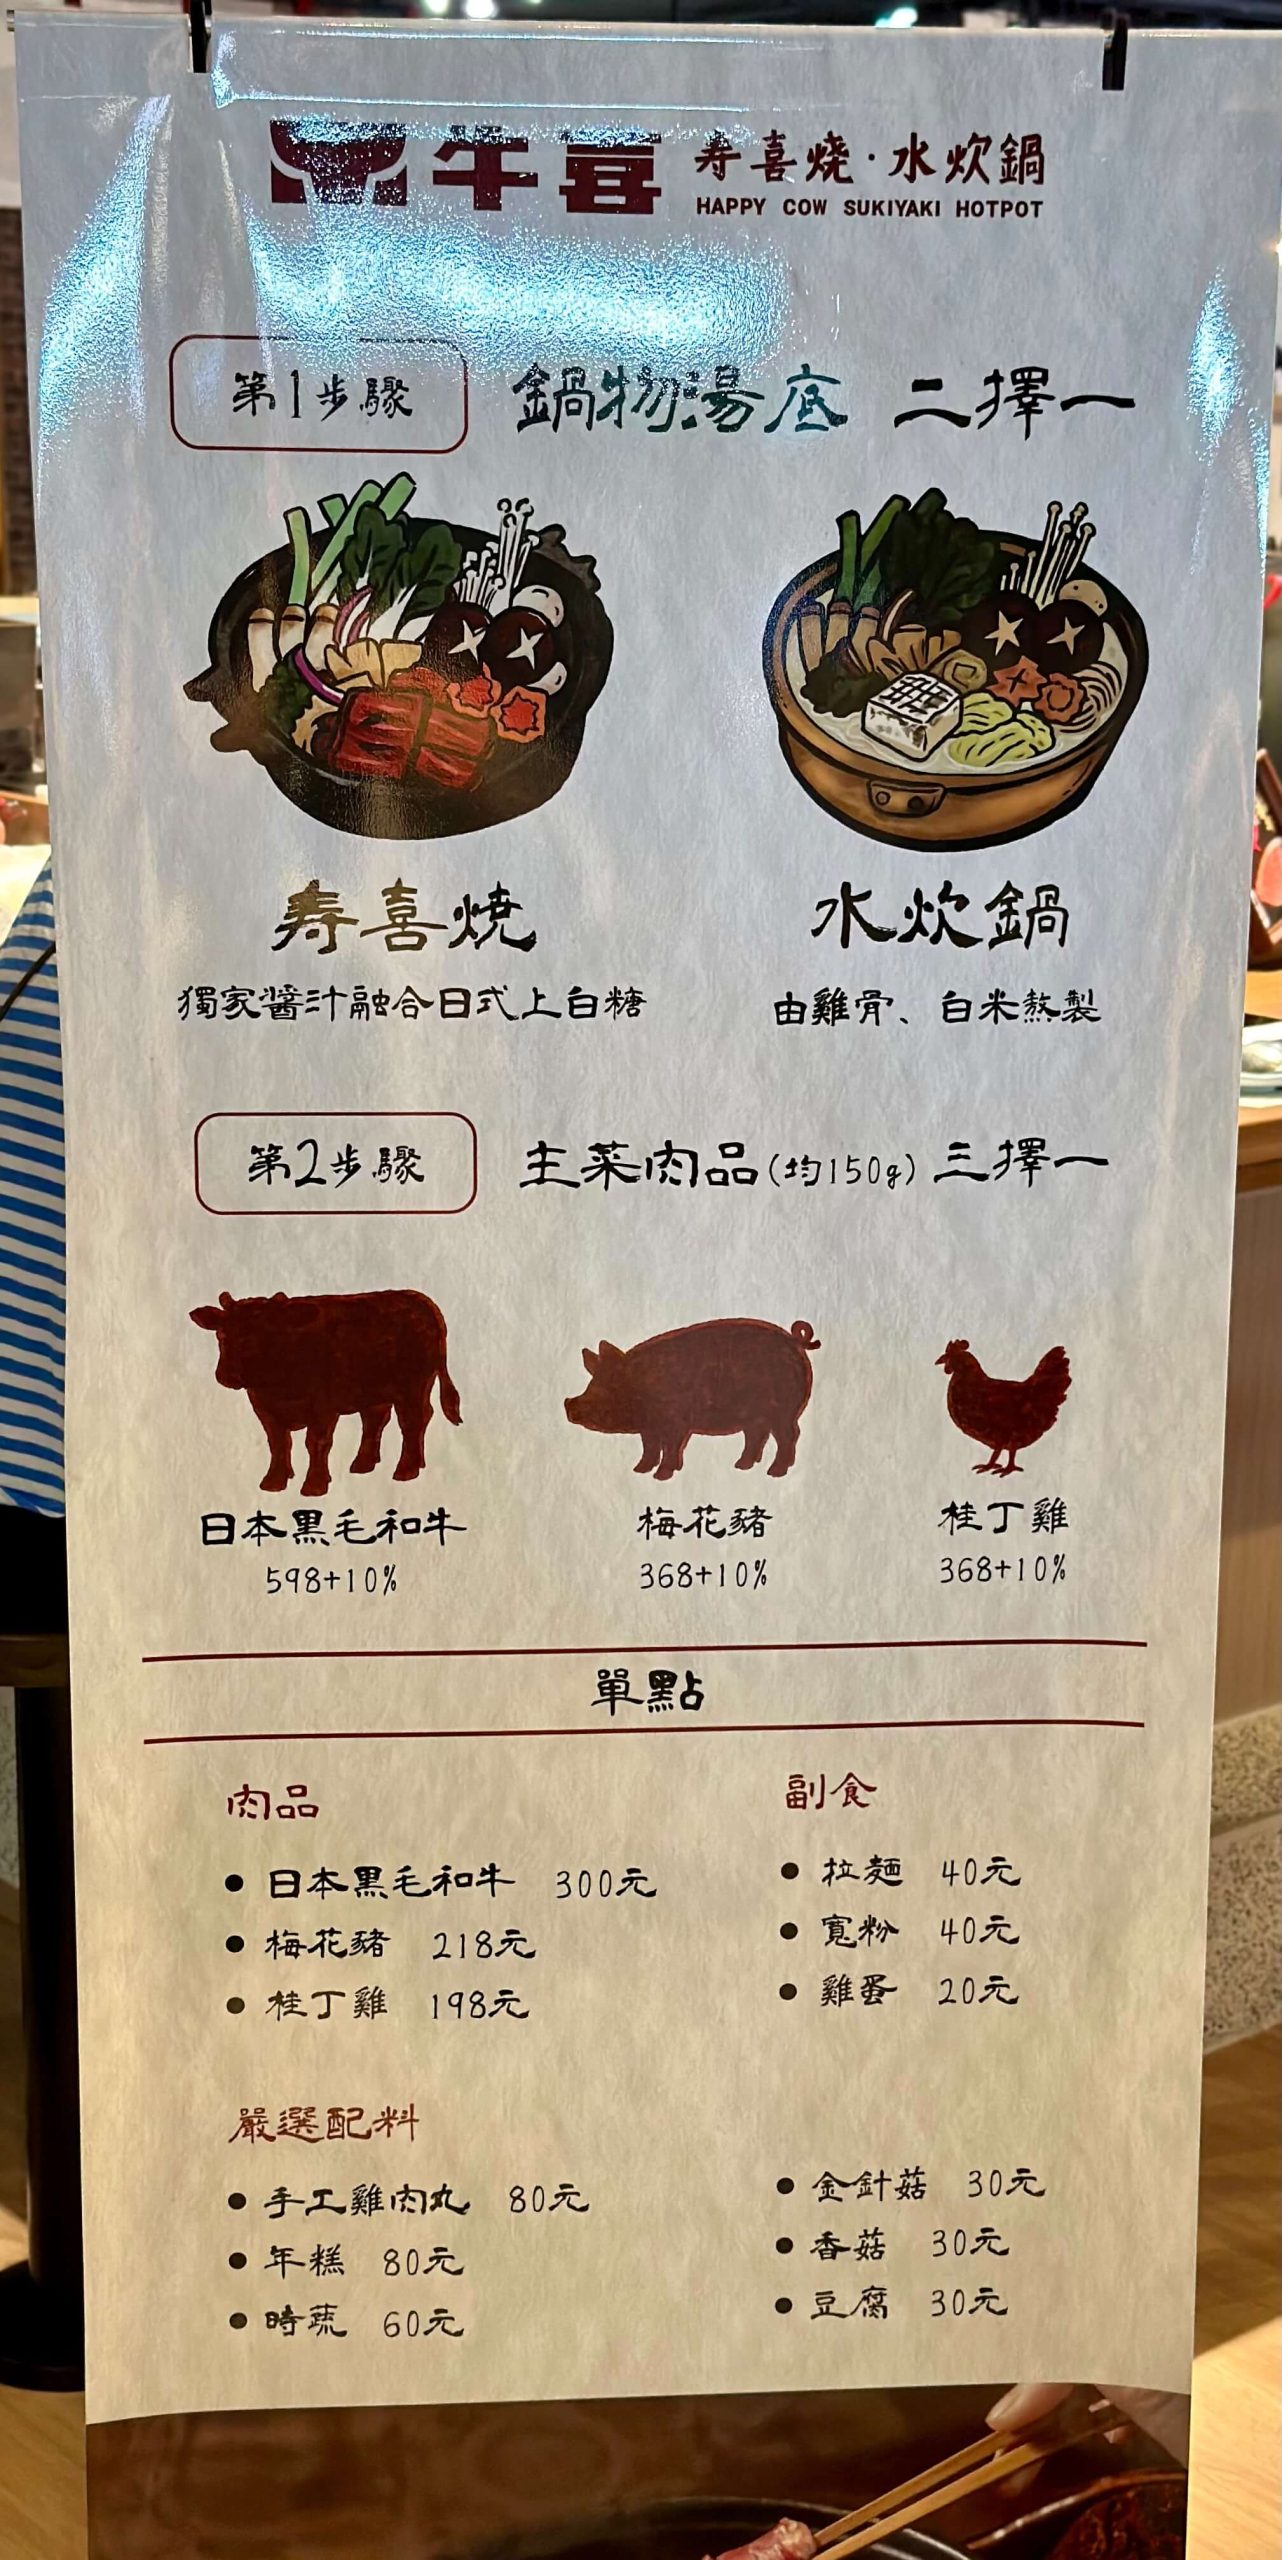 牛喜 寿喜燒·水炊鍋
HAPPY COW SUKIYAKI HOTPOT
第1步驟 鍋物湯底 二擇一
寿喜燒 水炊鍋
獨家醬汁融合日式上白糖 由雞骨、白米熬製
第2步驟 主菜肉品(均150g) 三擇一
日本黑毛和牛 梅花豬 桂丁雞
598+10% 368+10% 368+10%
單點
肉品 副食
● 日本黑毛和牛 300元 ● 拉麵 40元
● 梅花豬 218元 ● 寬粉 40元
● 桂丁雞 198元 ● 雞蛋 20元
嚴選配料
● 手工雞肉丸 80元 ● 金針菇 30元
● 年糕 80元 ● 香菇 30元
● 時蔬 60元 ● 豆腐 30元